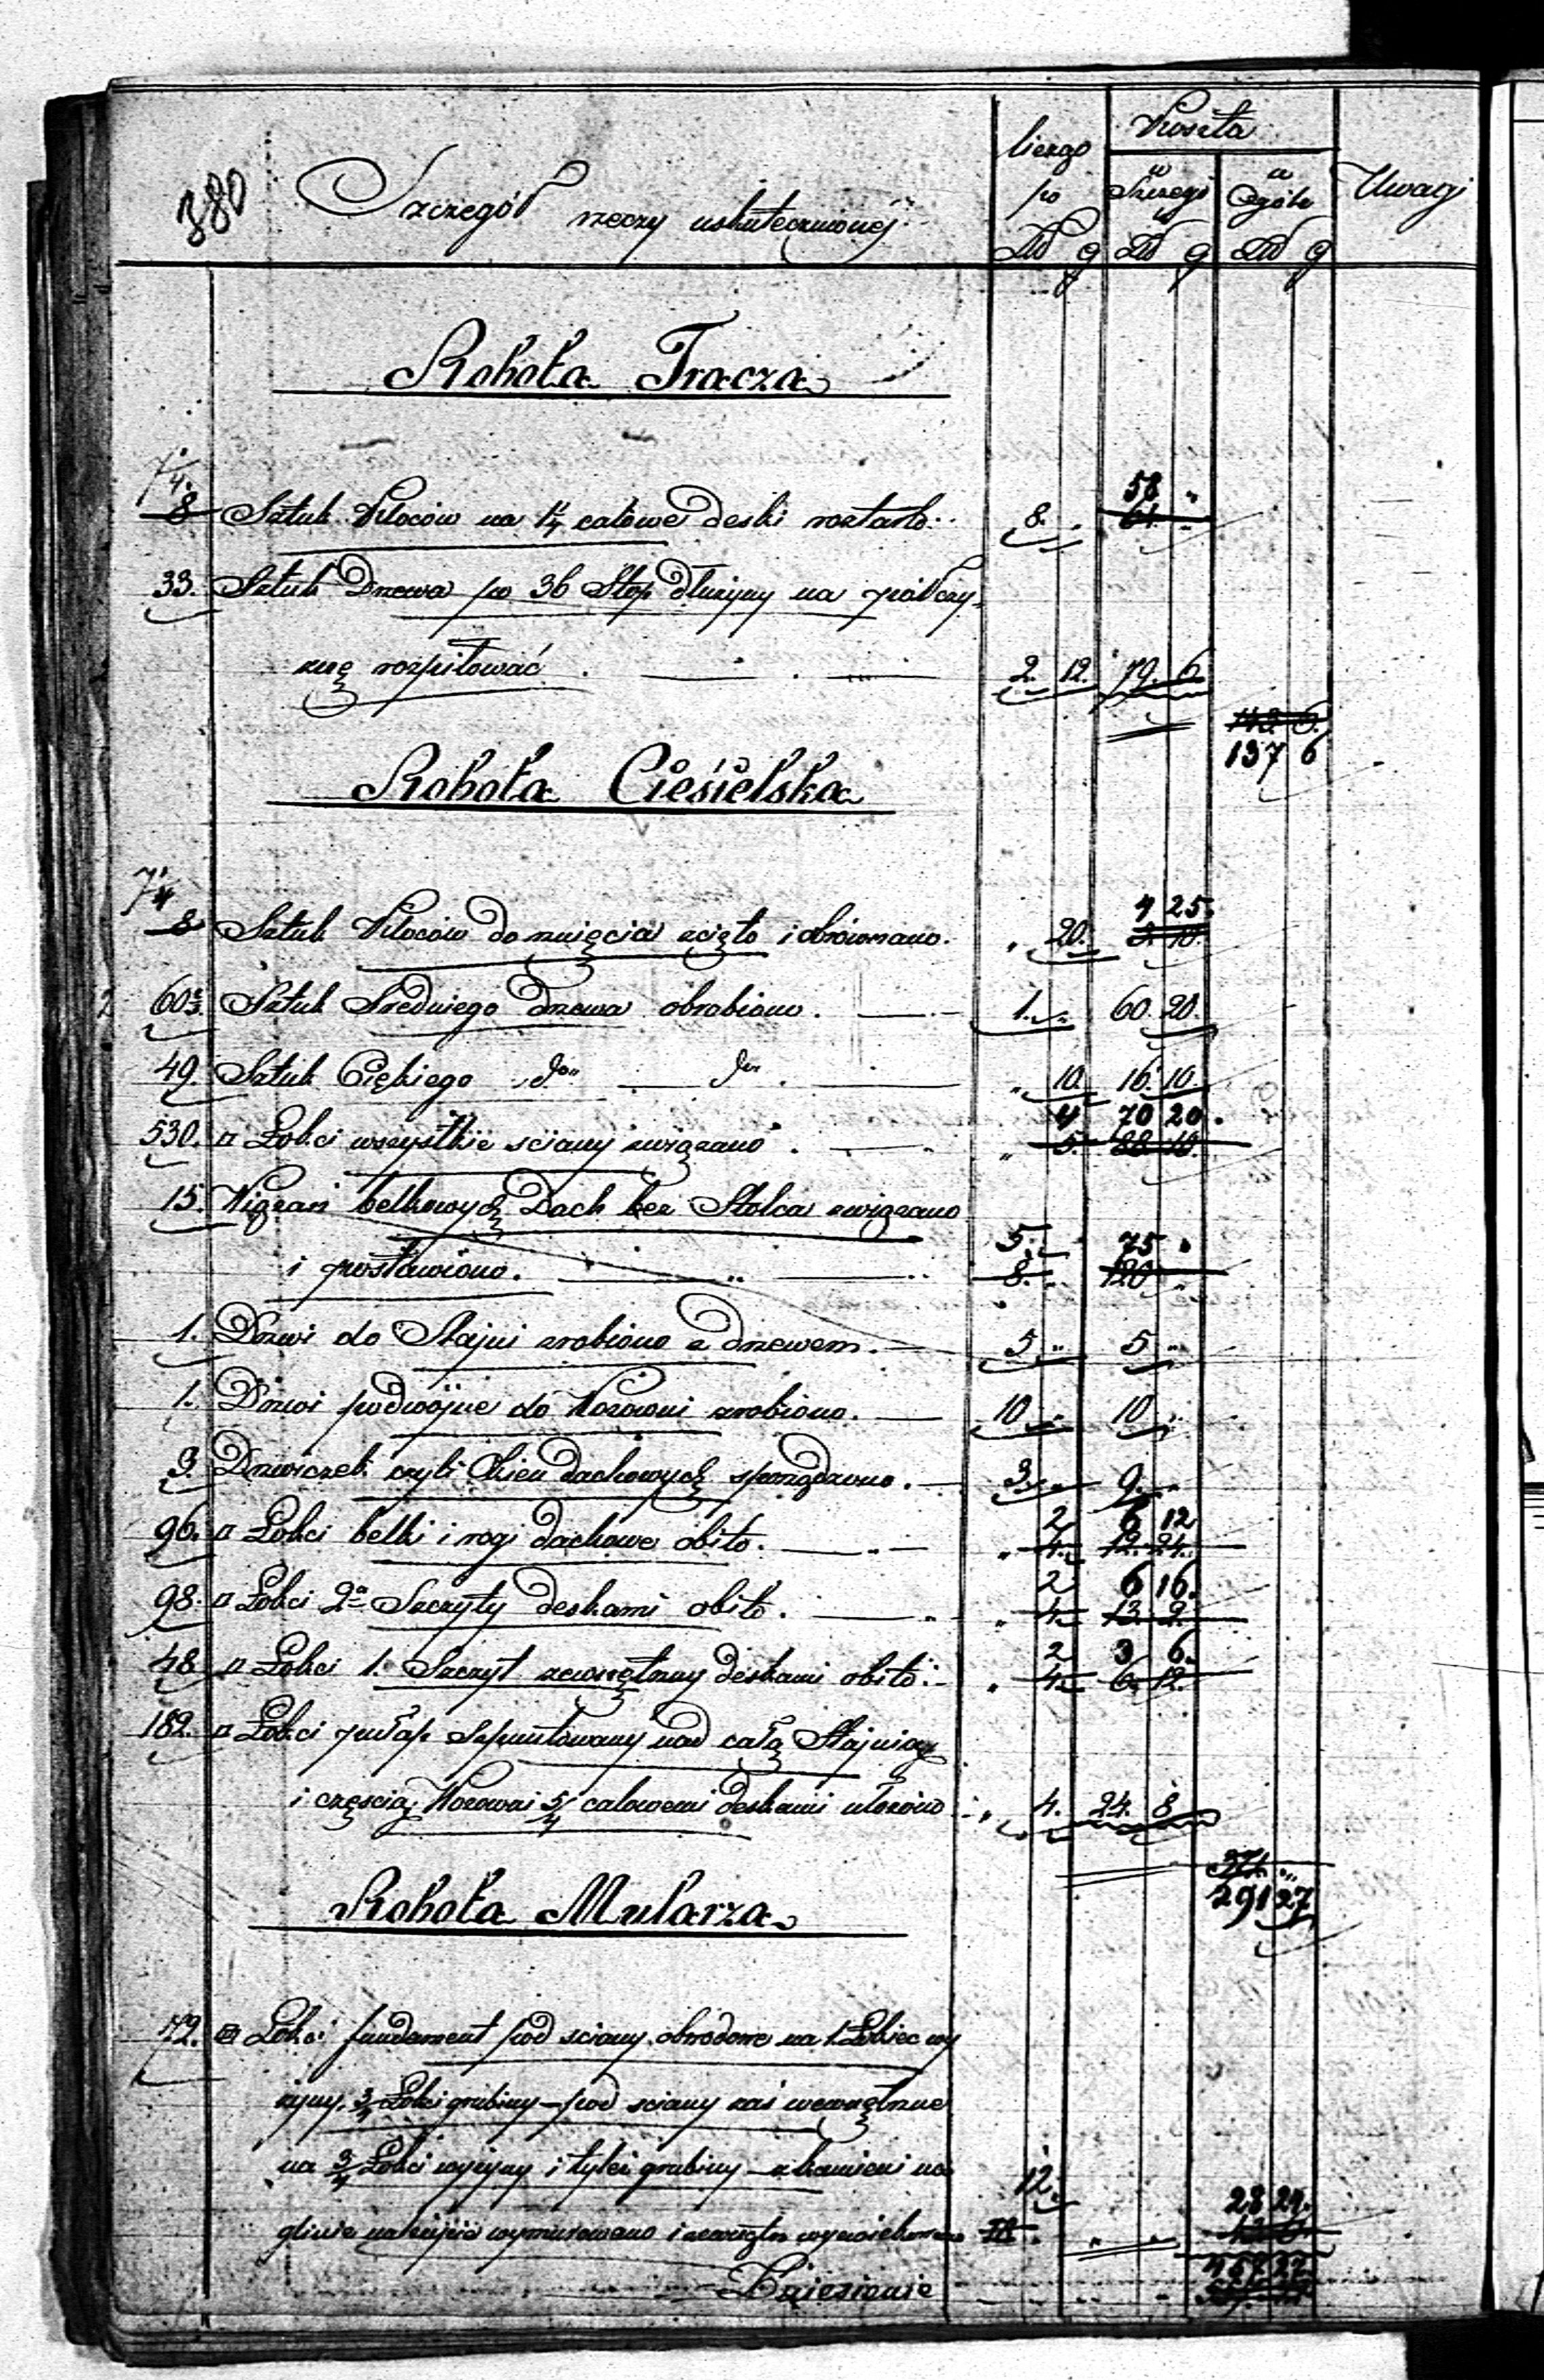 380
Szczegół rzeczy uskutecznionej
liczgo po
Koszta
w Szczegó
w Ogóle
Uwagi
Zł g Zł g Zł g
Robota Tracza
7 1/4.
58 "
8 Sztuk Kloców na 1/4 calowe deski roztarto 8. " 64 "
33. Sztuk Drzewa po 36 Stop dłużyny na
znę rozpiłować . 2. 12. 79. 6.
143 6.
137 6
Robota Ciesielska
7 1/4
4 25.
8 Sztuk Kloców do rznięcia ścięto i obrównano. " 20. 5 10.
60 2/3. Sztuk Sredniego drzewa obrobiono . 1. " 60. 20.
49. Sztuk Cięnkiego do do . " 10. 16. 10.
4 70 20.
530. □ Łokci wszystkie sciany związano . " 5. 88 10.
15. Wiązań belkowych Dach bez Stolca związano
5. " 75 "
i postawiono. 8. " 120 "
1. Drzwi do Stajni zrobiono z drzewem. 5 " 5 "
1. Drzwi podwójne do Wozowni zrobiono. 10 " 10 "
3. Drzwiczek czyli Okien dachowych sporządzono. 3 " 9. "
2 6 12
96. □ Łokci belki i rogi dachowe obito. " 4. 12. 24.
2 6 16.
98. □ Łokci 2a Szczyty deskami obito. " 4. 13 2.
2 3 6.
48 □ Łokci 1. Szczyt zewnętrzny deskami obito. " 4. 6. 12.
182. □ Łokci pułap szpuntowany nad całą Stajnią
i częścią Wozowni 5/4 calowemi deskami ułożono " 4. 24. 8
371 "
291 27
Robota Mularza
72. Łokci fundament pod sciany obwodowe na 1 Łokiec wy
żyny, 3/4 Łokci grubiny - pod sciany zaś wewnętrzne
na 3/4 Łokci wyżyny i tyleż grubiny z kamieni na
12.
28 24.
glinie wymurowano i zewnątrz
457 27.